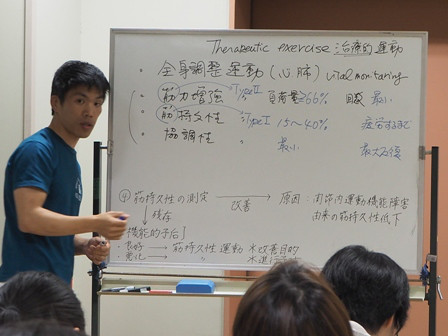 Therapeutic exercise 治療的運動
・全身調整運動(心肺) vital monitoring
・筋力増強 TypeⅡ 負荷量≧66% 回数 最小
・筋持久性 TypeⅠ 15~40% 疲労するまで
・協調性 最小 最大反復
筋持久性の測定 → 改善 原因:関節内運動機能障害
↓残存 由来の筋持久性低下
機能的予后
・良好 → 筋持久性運動 ※改善目的
・悪化 → 〃